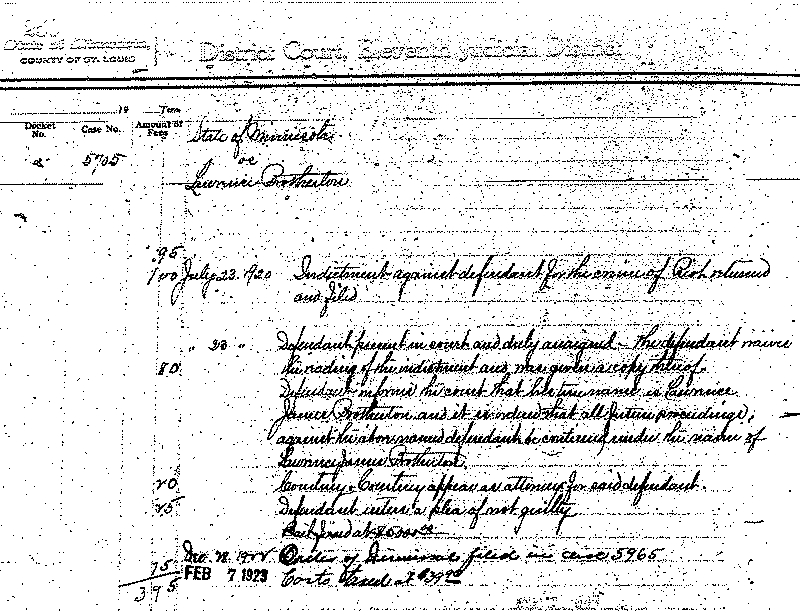 State of Minnesota,
COUNTY OF ST. LOUIS
District Court, Eleventh Judicial District
19 Term
Docket No. Case No. Amount of Fees
State of Minnesota
5705 vs
Lawrence Brotherton
95
100 July 23. 1920 Indictment against defendant for the crime of Riot returned
and filed
" 23 " Defendant present in court and duly arraigned - The defendant waives
80 the reading of the indictment and was given a copy thereof.
Defendant informs the court that his true name is Lawrence
James Brotherton and it is ordered that all future proceedings,
against the above named defendant be continued under the name of
Lawrence James Brotherton.
20 Courtney & Courtney appear as attorneys for said defendant.
25 Defendant enters a plea of not guilty
Bail fixed at
75 Dec. 1922 Order of Dismissal filed in case 5965
395 FEB 7 1923 Costs taxed at